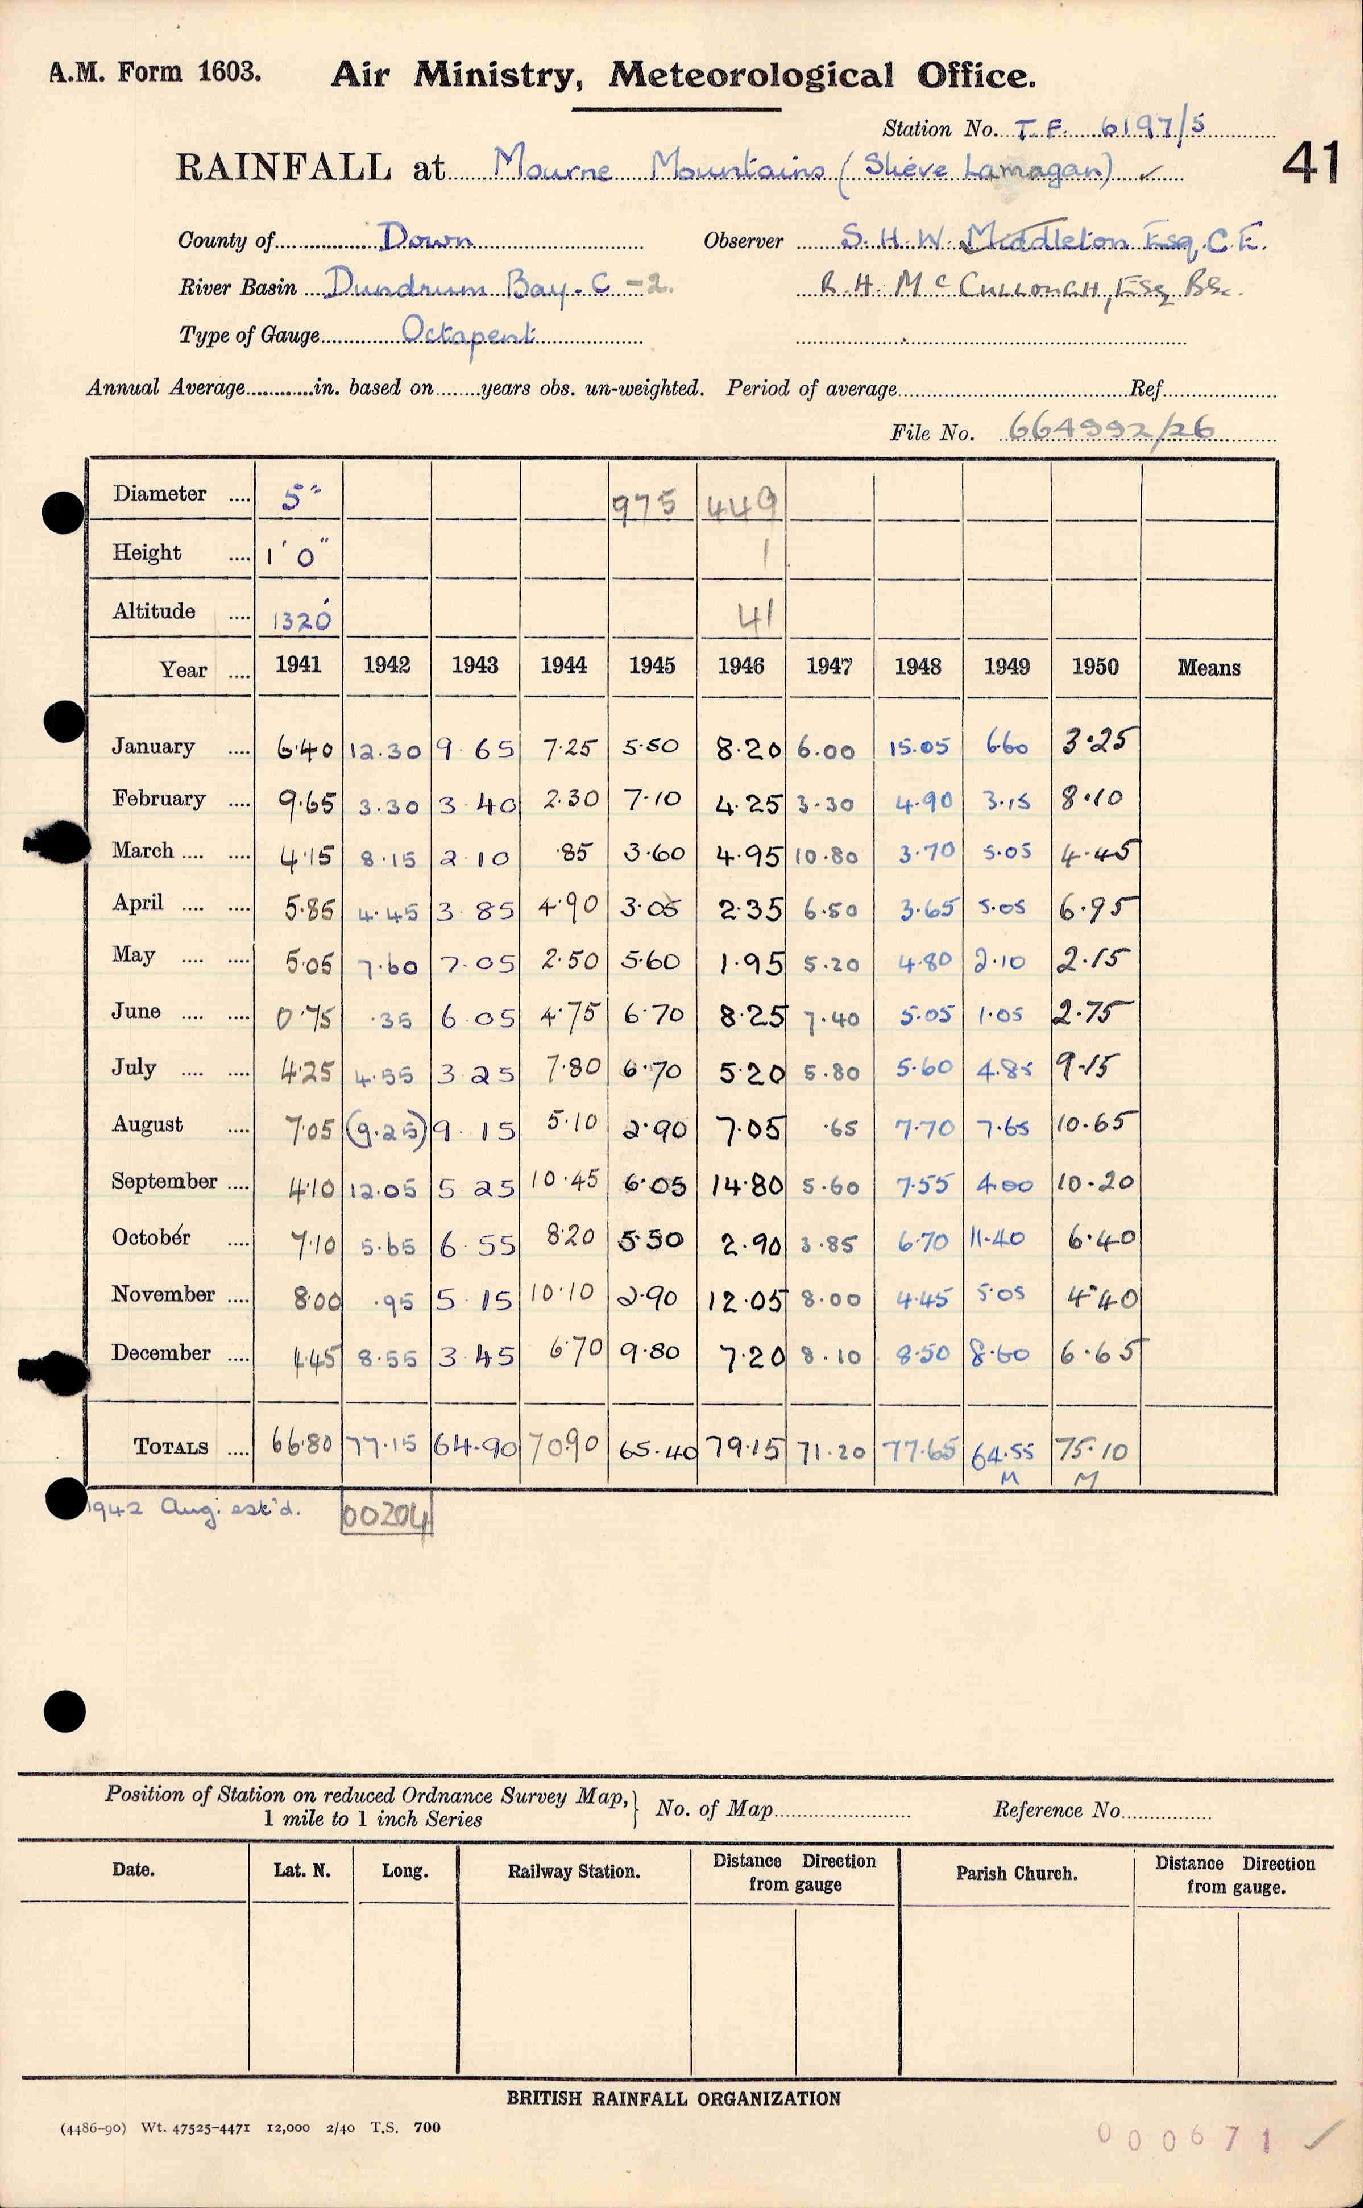 A.M. Form 1603. Air Ministry, Meteorological Office.
Station No. T.F. 6197/5
41
RAINFALL at Mourne Mountains (Slieve Lamagan) ✓
County of Down Observer S. H. W. Middleton Esq. C.E.
River Basin Dundrum Bay - C - 2. R. H. McCULLOUGH, ESq BSc.
Type of Gauge Octapent
Annual Average in. based on years obs. un-weighted. Period of average Ref
File No. 664992/26
Diameter 5" 975 449
Height 1' 0" 1
Altitude 1320' 41
Year 1941 1942 1943 1944 1945 1946 1947 1948 1949 1950 Means
January 6.40 12.30 9 65 7.25 5.50 8.20 6.00 15.05 6.60 3.25
February 9.65 3.30 3 40 2.30 7.10 4.25 3.30 4.90 3.15 8.10
March 4.15 8.15 2 10 .85 3.60 4.95 10.80 3.70 5.05 4.45
April 5.85 4.45 3 85 4.90 3.05 2.35 6.50 3.65 5.05 6.95
May 5.05 7.60 7.05 2.50 5.60 1.95 5.20 4.80 2.10 2.15
June 0.75 .35 6 05 4.75 6.70 8.25 7.40 5.05 1.05 2.75
July 4.25 4.55 3 25 7.80 6.70 5.20 5.80 5.60 4.85 9.15
August 7.05 (9.25) 9 15 5.10 2.90 7.05 .65 7.70 7.65 10.65
September 4.10 12.05 5 25 10.45 6.05 14.80 5.60 7.55 4.00 10.20
October 7.10 5.65 6 55 8.20 5.50 2.90 3.85 6.70 11.40 6.40
November 8.00 .95 5 15 10.10 2.90 12.05 8.00 4.45 5.05 4.40
December 4.45 8.55 3 45 6.70 9.80 7.20 8.10 8.50 8.60 6.65
TOTALS 66.80 77.15 64.90 70.90 65.40 79.15 71.20 77.65 64.55 75.10
M M
1942 Aug. est'd. 00204
Position of Station on reduced Ordnance Survey Map, } No. of Map Reference No.
1 mile to 1 inch Series
Date. Lat. N. Long. Railway Station. Distance Direction from gauge Parish Church. Distance Direction from gauge.
BRITISH RAINFALL ORGANIZATION
(4486-90) Wt. 47525-4471 12,000 2/40 T.S. 700
000671 ✓